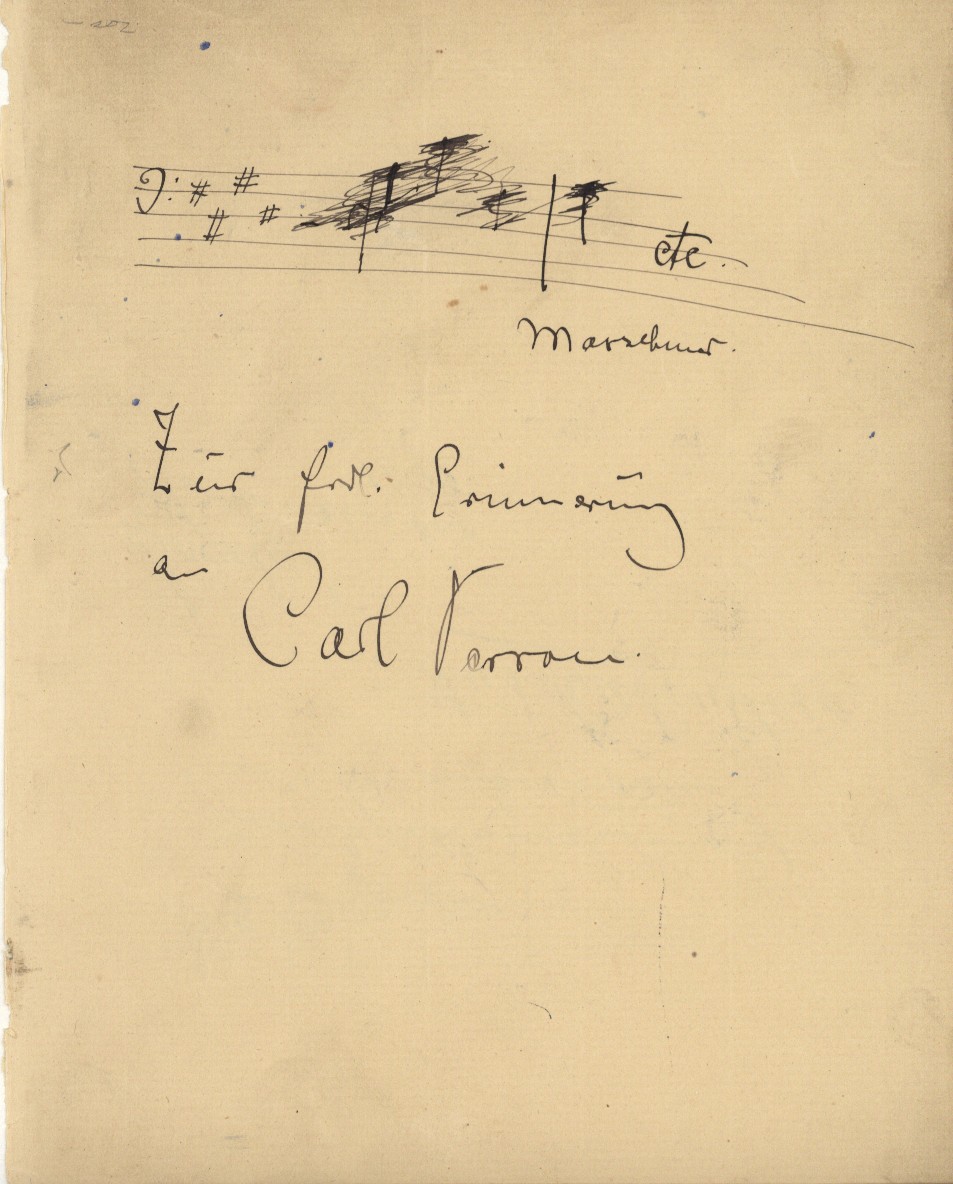 202
etc.
Marschner.
Zur frdl. Erinnerung
an
Carl Perron.